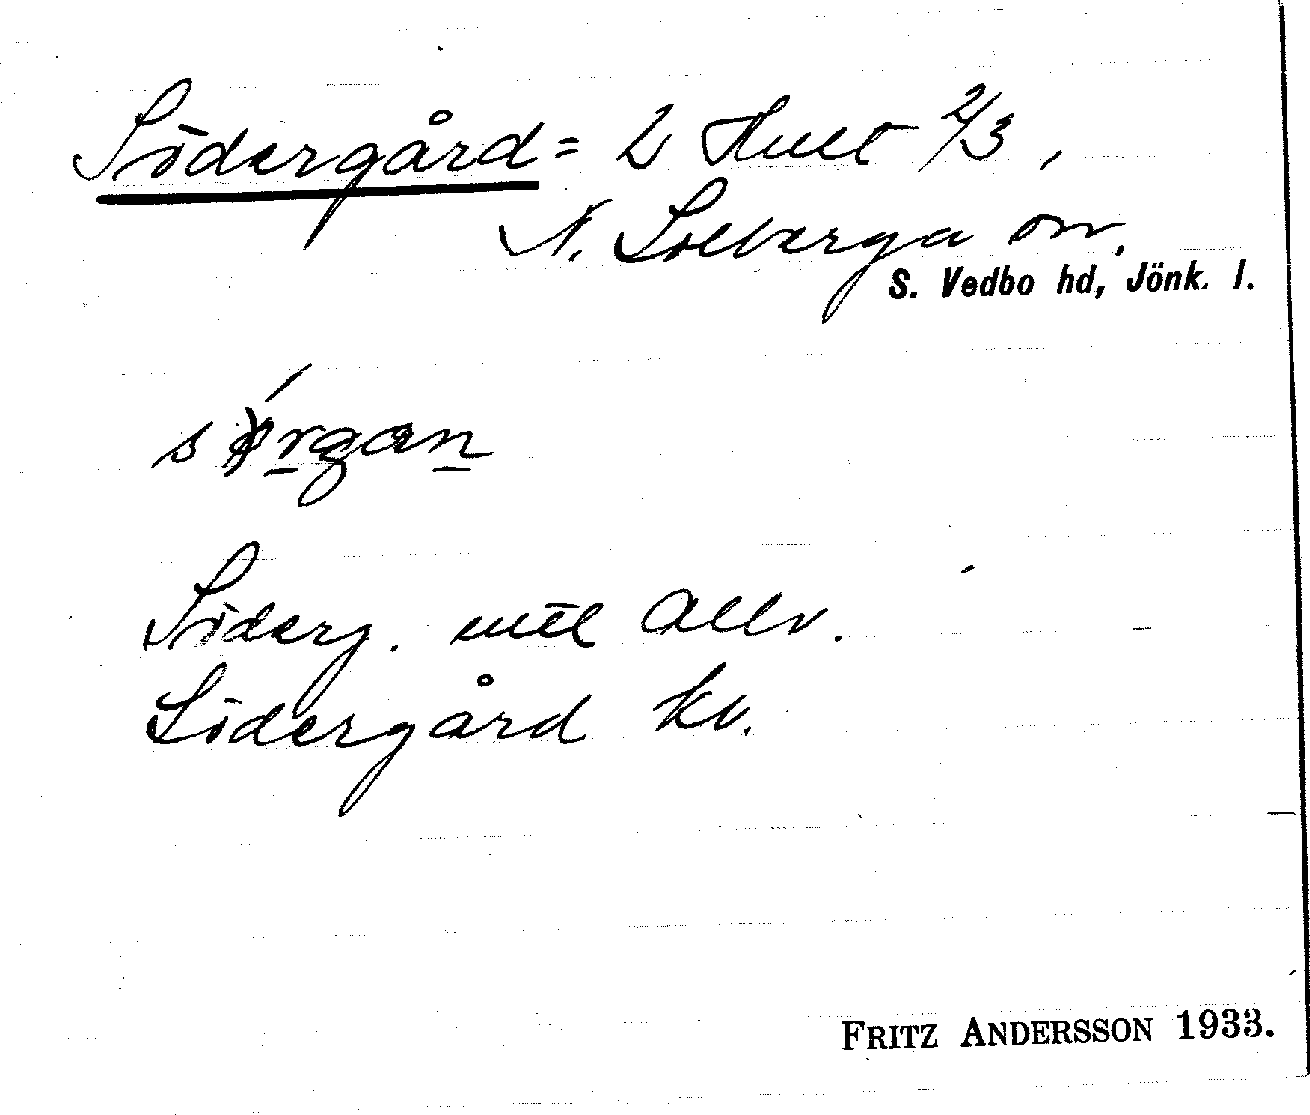 Södergård = 2 Hult 2/3,
N. Solberga sn.
S. Vedbo hd, Jönk. l.
Söderg. uttl allv.
Södergård kv.
FRITZ ANDERSSON 1933.